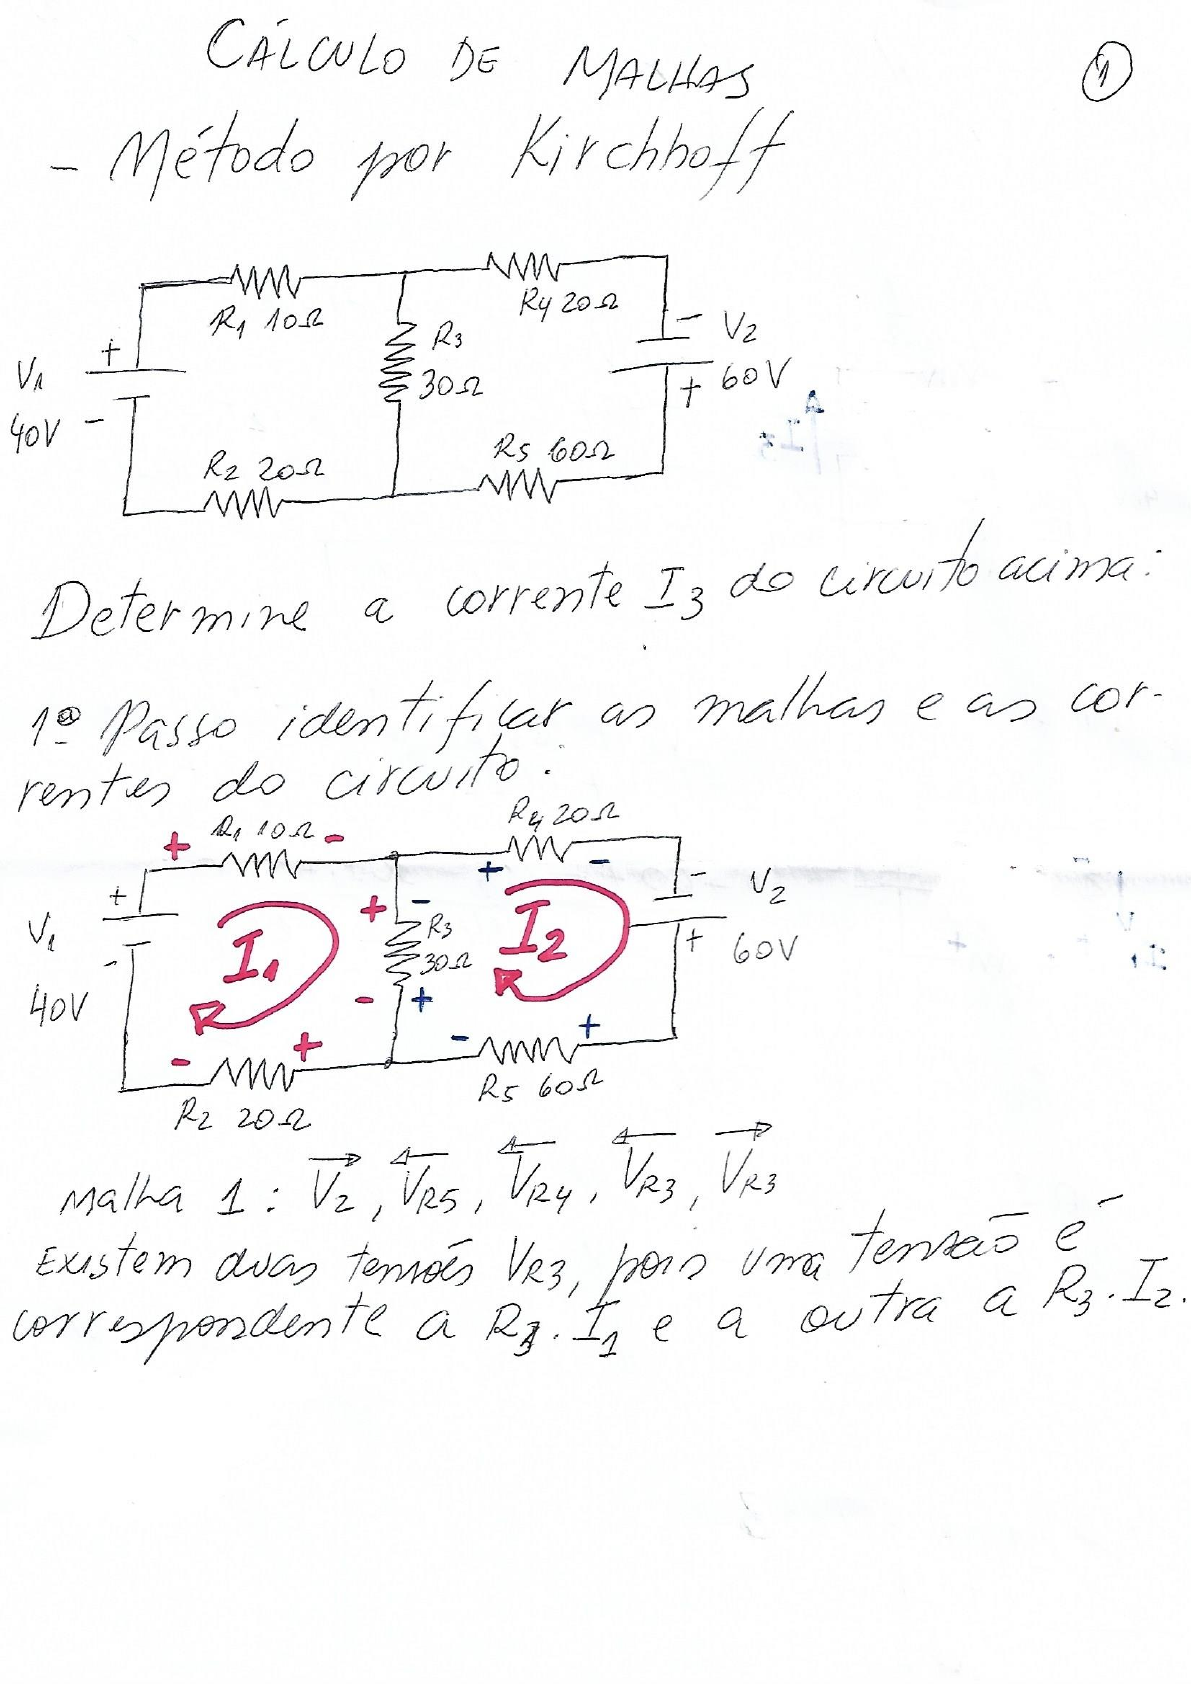 CÁLCULO DE MALHAS
1
- Método por Kirchhoff
R1 10Ω
R4 20Ω
+
V1
40V
-
R3
30Ω
- V2
+ 60V
R2 20Ω
R5 60Ω
Determine a corrente I3 do circuito acima:
1º Passo identificar as malhas e as cor-
rentes do circuito:
+ R1 10Ω -
R4 20Ω
+ -
+
V1
-
40V
I1
+ -
R3
30Ω
- +
I2
- V2
+ 60V
- +
R2 20Ω
- +
R5 60Ω
Malha 1: V2, VR5, VR4, VR3, VR3
Existem duas tensões VR3, pois uma tensão é
correspondente a R3.I1 e a outra a R3.I2.